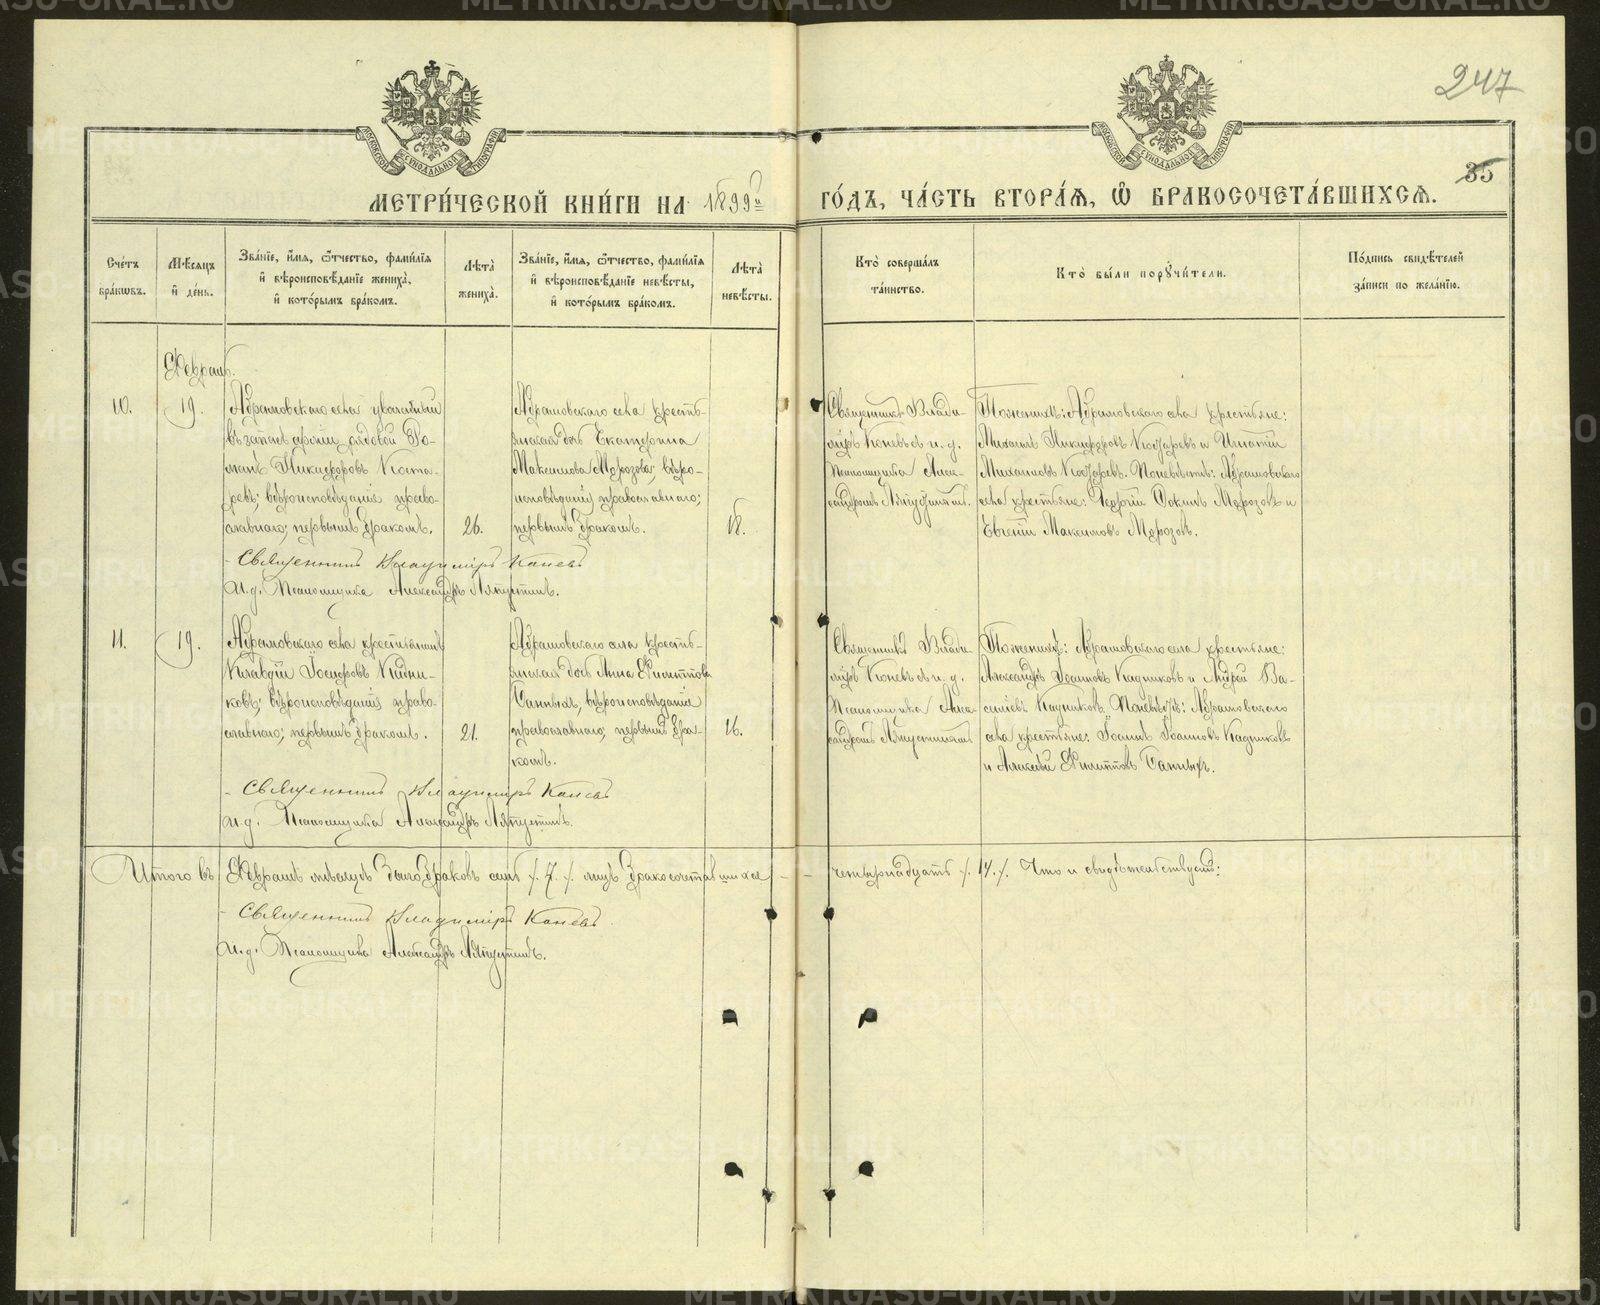 247
35
МЕТРИ́ЧЕСКОЙ КНИ́ГИ НА 1899й ГО́ДЪ, ЧА́СТЬ ВТОРА́Ѧ, Ѡ҆ БРАКОСОЧЕТА́ВШИХСѦ.
Сче́тъ бра́кѡвъ.
Мѣ́сяцъ и҆ де́нь.
Зва́нїе, и҆́мѧ, ѻ҆́тчество, фами́лїѧ
и҆ вѣроисповѣ́данїе жениха̀,
и҆ кото́рымъ бра́комъ.
Лѣта̀ жениха̀.
Зва́нїе, и҆́мѧ, ѻ҆́тчество, фами́лїѧ
и҆ вѣроисповѣ́данїе невѣ́сты,
и҆ кото́рымъ бра́комъ.
Лѣта̀ невѣ́сты.
Кто̀ соверша́лъ та́инство.
Кто̀ бы́ли порꙋчи́тели.
По́дпись свидѣ́телей
за́писи по жела́нїю.
Февраль.
10.
19.
Абрамовскаго села уволенный
въ запасъ арміи рядовой Ро-
манъ Никифоровъ
вѣроисповѣданія право-
славнаго; первымъ бракомъ.
26.
Абрамовскаго села кресть-
янская дочь Екатерина
Максимова Морозова; вѣро-
исповѣданія православнаго;
первымъ бракомъ.
18.
Священникъ Влади-
міръ Коневъ съ и. д.
Псаломщика Алек-
сандромъ Ляпустинымъ.
По женихѣ: Абрамовскаго села крестьяне:
Михаилъ Никифоровъ и Игнатій
Михаиловъ По невѣстѣ: Абрамовскаго
села крестьяне: Георгій Фокинъ Морозовъ и
Евгеній Максимовъ Морозовъ.
Священникъ Владиміръ Коневъ
И. д. Псаломщика Александръ Ляпустинъ.
11.
19.
Абрамовскаго села крестьянинъ
Клавдій Іосифовъ Кадни-
ковъ; вѣроисповѣданія право-
славнаго; первымъ бракомъ.
21.
Абрамовскаго села кресть-
янская дочь Анна Филиппова
Банныхъ, вѣроисповѣданія
православнаго; первымъ бра-
комъ.
16.
Священникъ Влади-
міръ Коневъ съ и. д.
Псаломщика Алек-
сандромъ Ляпустинымъ
По женихѣ: Абрамовскаго села крестьяне:
Александръ Іоанновъ Кадниковъ и Андрей Ва-
сильевъ Кадниковъ. По невѣстѣ: Абрамовскаго
села крестьяне: Іоаннъ Іоанновъ Кадниковъ
и Алексѣй Филипповъ Банныхъ.
Священникъ Владиміръ Коневъ
И. д. Псаломщика Александръ Ляпустинъ.
Итого въ Февралѣ мѣсяцѣ было браковъ семь /. 7. /. лицъ бракосочетавшихся - - четырнадцать /. 14. /. Что и свидѣтельствуемъ:
Священникъ Владиміръ Коневъ.
И. д. Псаломщика Александръ Ляпустинъ.
METRIKI.GASO-URAL.RU